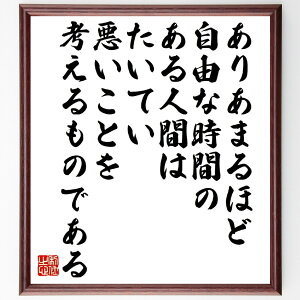 ありあまるほど
自由な時間の
ある人間は
たいてい
悪いことを
考えるものである